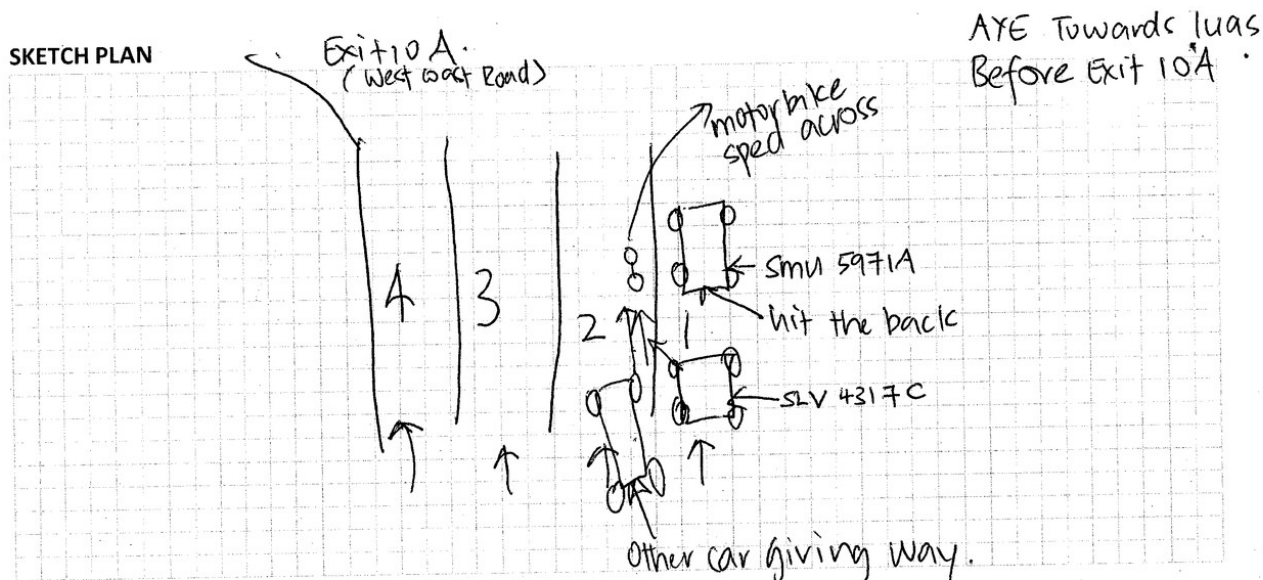 SKETCH PLAN
Exit 10 A.
(West Coast Road)
AYE Towards Tuas
Before Exit 10A.
motorbike
sped across
SMU 5971A
hit the back
4 3 2 1
SLV 4317C
Other car giving way.